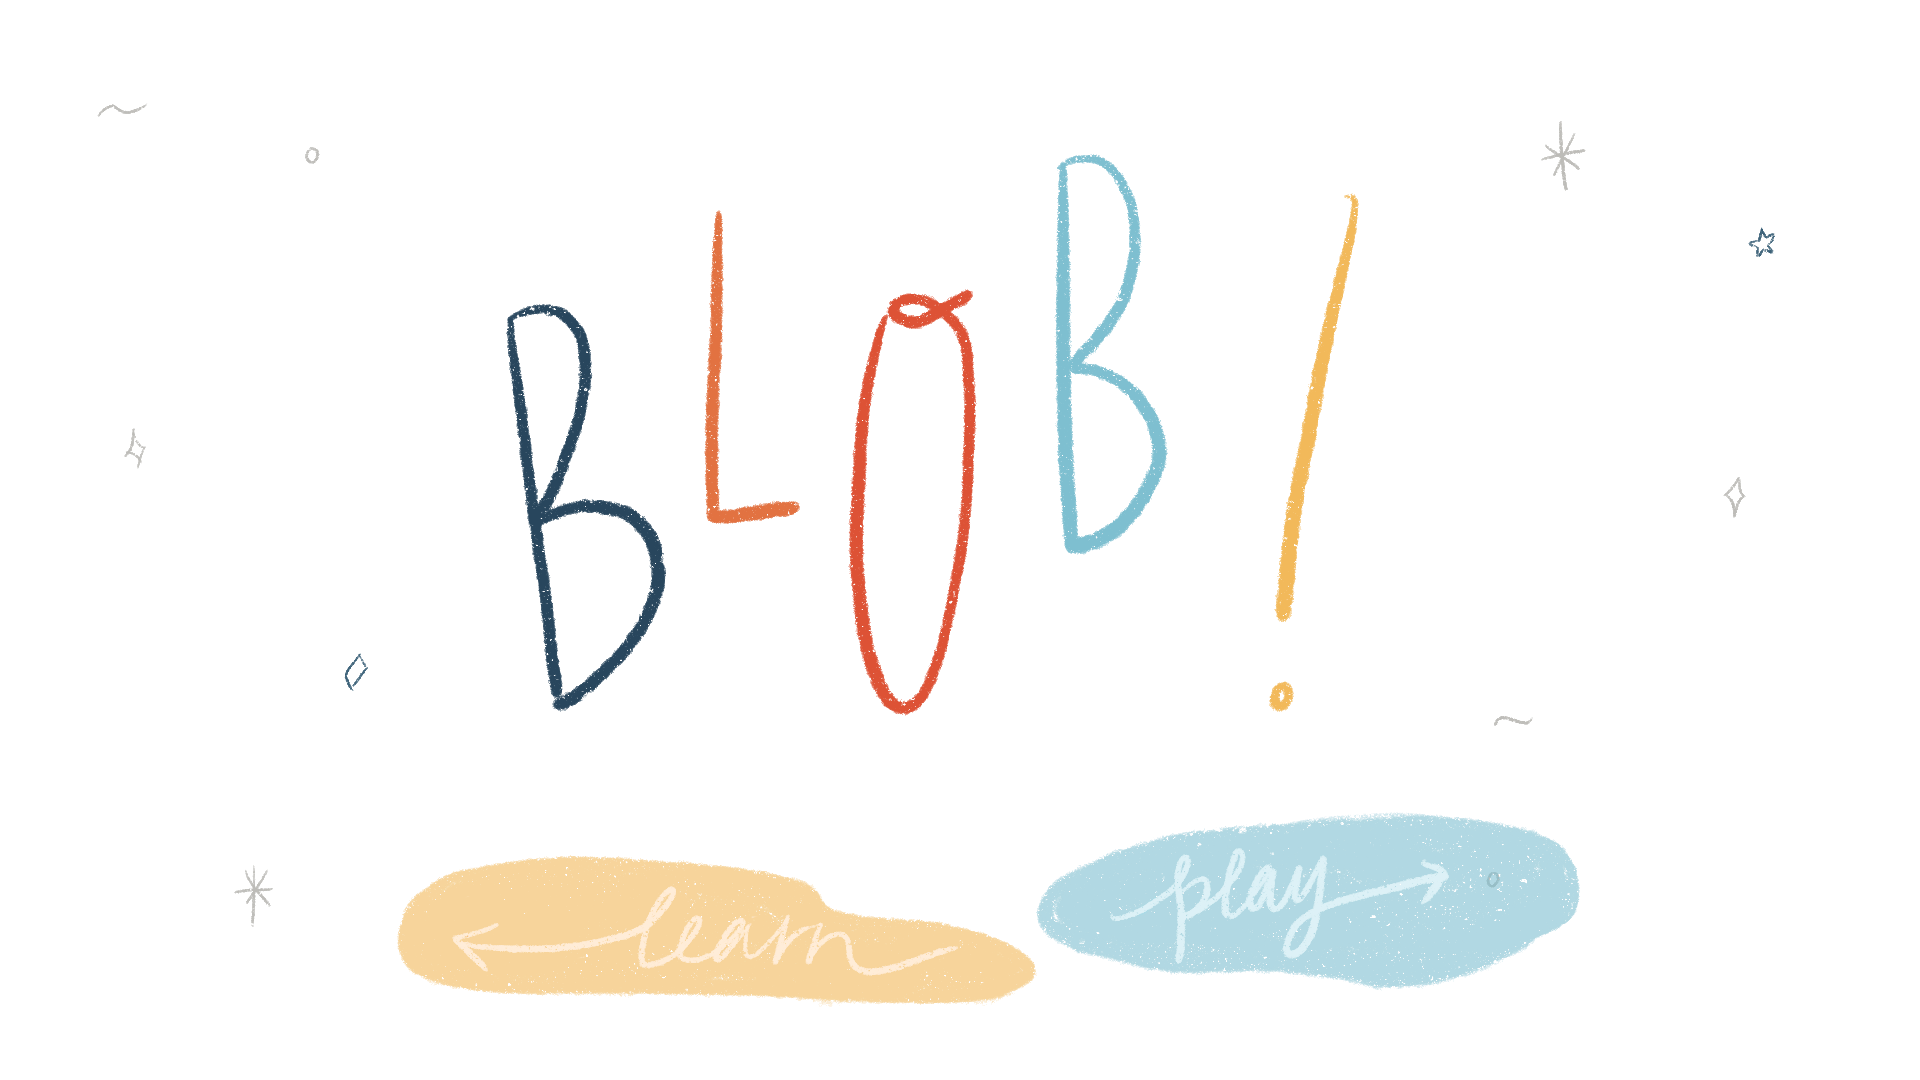 BLOB!
learn
play